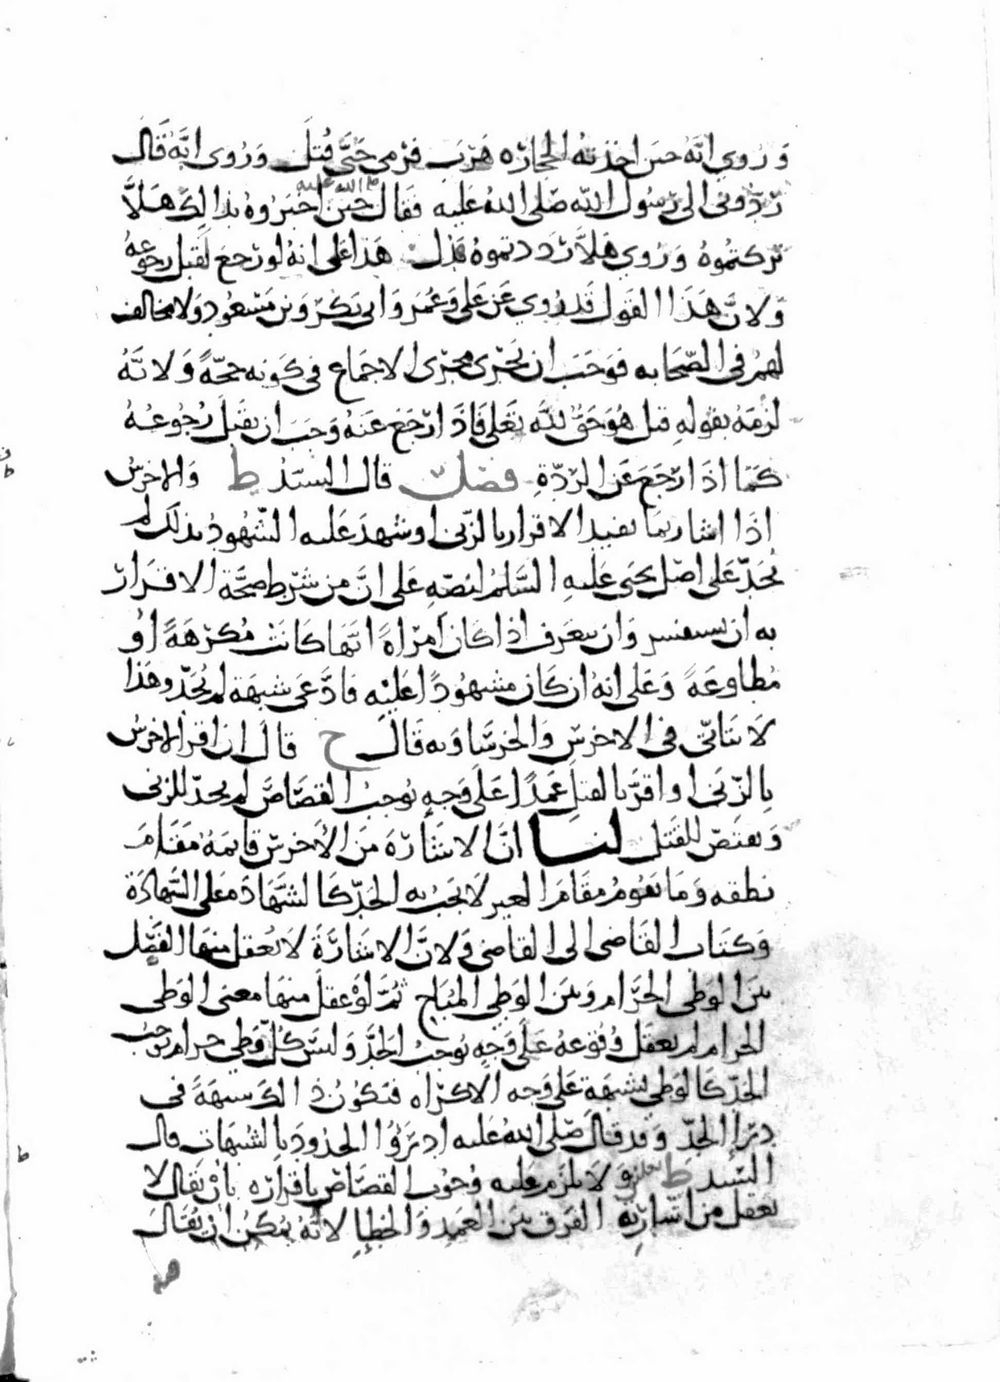 وَرُوي انّهُ حين اخذتهُ الحجارة هَرَب فرُمي حَتَّى قُتلَ وَرُوي انَّهُ قَال
رُدّوني الى رَسُول الله صَلى اللهُ عَليه فقَال حين اخبَروهُ بذالك هَلاَّ
تركتمُوهُ وَرُوي هَلاَّ رَددتموهُ فدل هَذا عَلى انهُ لو رَجعَ لَقبل رجوعهُ
وَلانَّ هَذا القول قد رُوي عَن عَلي وَعُمَر وَابي بَكرٍ وَبن مَسْعُود ولا مخالف
لهمُ في الصّحَابه فوَجَبَ ان يَجْرى مجرَى الاجمَاع في كَونه حجّةً وَلانَّهُ
لزمَهُ بقولهِ قبل هُوَ حَقٌ للهِ تعَلى فَاذَا رَجَعَ عَنهُ وَجبَ ان يقبَلَ رُجُوعُهُ
كمَا اذَا رَجَعَ عَن الرّدّةِ فصل قال السيّد ط والاخرسُ
اذَا اشار بمَا يفيد الاقرار بالزنى او شهدَ عَليه الشّهُودُ بذلك لم
يُحَدّ عَلى اصْل يحيى عَليهِ السَّلم لنصّهِ عَلى انَّ من شَرْط صحَّة الاقرَار
به ان يستفسر وَان يعَرف اذا كَان امرَاةً انّها كانَتْ مُكرَهَةً اوْ
مُطاوعَةً وَعَلى انهُ ان كَان مشهُودًا عَليْه فادَّعَى شبهَة لم يُحَدّ وهَذا
لا يتَاتّى في الاخرَس وَالخرسَا وَبه قَالَ ح قالَ ان اقر الاخرسُ
بالزّنَى او اقرَّ بالقتلِ عَمدًا عَلَى وَجهٍ يُوجبُ القصَاصَ لم يحدّ للزنى
وَيقتصّ للقتل لنا انّ الاشَارَة مَن الاَخرس قايمةُ مَقَامَ
نطقه وَمَا يقومُ مقَامَ الغير لا يَجبُ به الحدّ كَالشّهَادَة عَلى الشّهادَة
وَكتَاب القَاضى الى القاضى وَلانَّ الاشَارَةَ لا يُعقل منهَا الفَصْل
بينَ الوَطي الحَرَام وَبينَ الوَطي المُبَاح ثمَّ لوْ عقلَ منهَا معنى الوَطى
الحرام لم يعقَل وُقوعهُ عَلَى وَجهٍ يُوجبُ الحَدَّ وَليسَ كلّ وَطي حرام يُوجبُ
الحَدّ كَالوَطي لشبهَة عَلى وَجه الاكرَاه فتكُونُ ذالكَ شبهَةً في
دَرْإِ الحدّ وَقد قَالَ صَلّى اللهُ عَليه ادرَؤُا الحدُودَ بالشبُهَات قال
السّيد ط وَلا يلزَم عَليه وُجُوب القصَاص باقرارَه بانْ يقَال لا
يعقل من اشارته الفَرْق بينَ العَمدِ وَالخطإِ لانّهُ يمكنُ انْ يُقَالَ